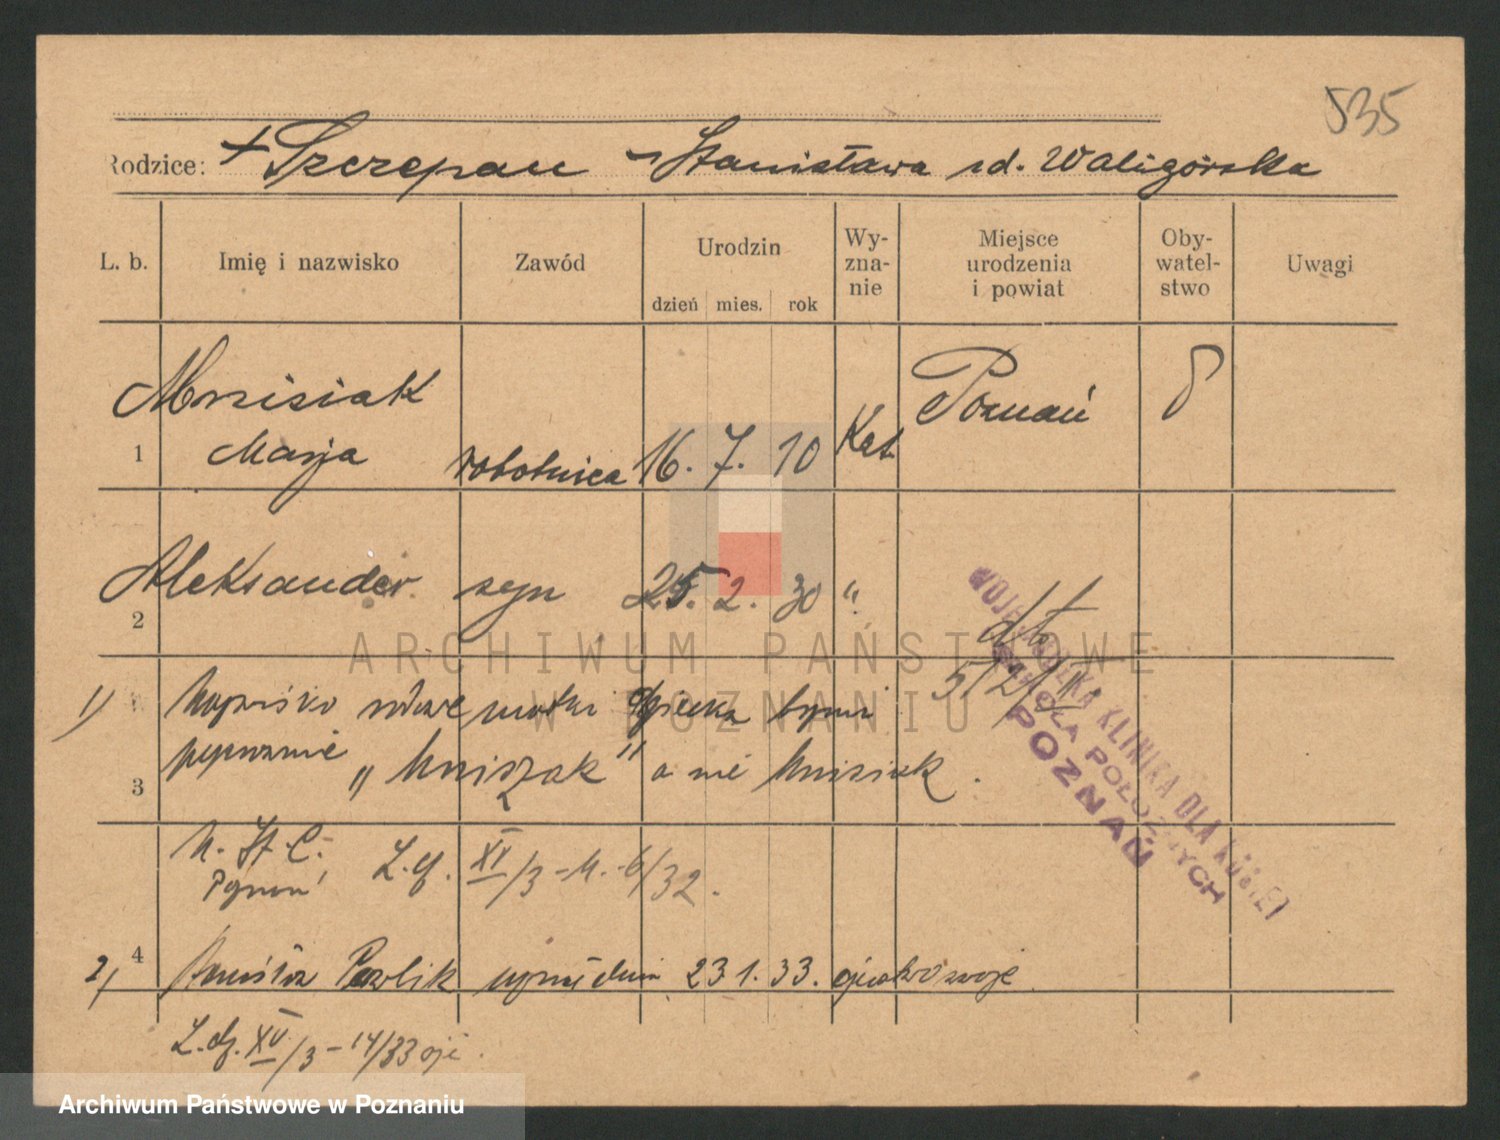 535
Rodzice: + Szczepan - Stanisława zd. Waligórska
L. b. Imię i nazwisko Zawód Urodzin dzień mies. rok Wy-zna-nie Miejsce urodzenia i powiat Oby-watel-stwo Uwagi
Mnisiak
1 Marja robotnica 16. 7. 10 Kat. Poznań
2 Aleksander syn 25. 2. 30 "
dto
5/2
1) Nazwisko matki dziecka brzmi
3 poprawnie „Mniszak" a nie Mnisiak.
U. St. C.
Poznań, L. dz. XV/3-M.-6/32.
2) 4 Stanisław Pawlik uznał dnia 23 1. 33. dziecko za swoje
L. dz. XV/3-14/33
WOJEWÓDZKA KLINIKA DLA KOBIET
SZKOŁA POŁOŻNYCH
POZNAŃ
ARCHIWUM PAŃSTWOWE
W POZNANIU
Archiwum Państwowe w Poznaniu